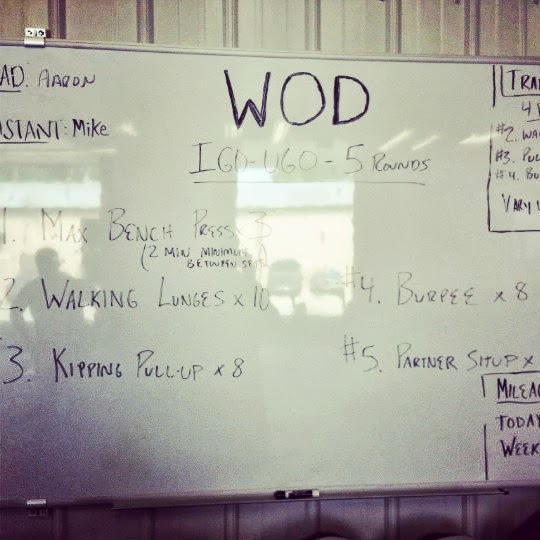 AD. AARON
ISTANT: Mike
WOD
IGO-UGO-5 ROUNDS
1. MAX BENCH PRESS x 3
(2 MIN MINIMUM
BETWEEN SETS)
2. WALKING LUNGES x 10
3. KIPPING PULL-UP x 8
#4. BURPEE x 8
#5. PARTNER SITUP x
TRA
4
#2. WA
#3. PUL
#4. BU
VARY
MILEAG
TODAY
WEEK